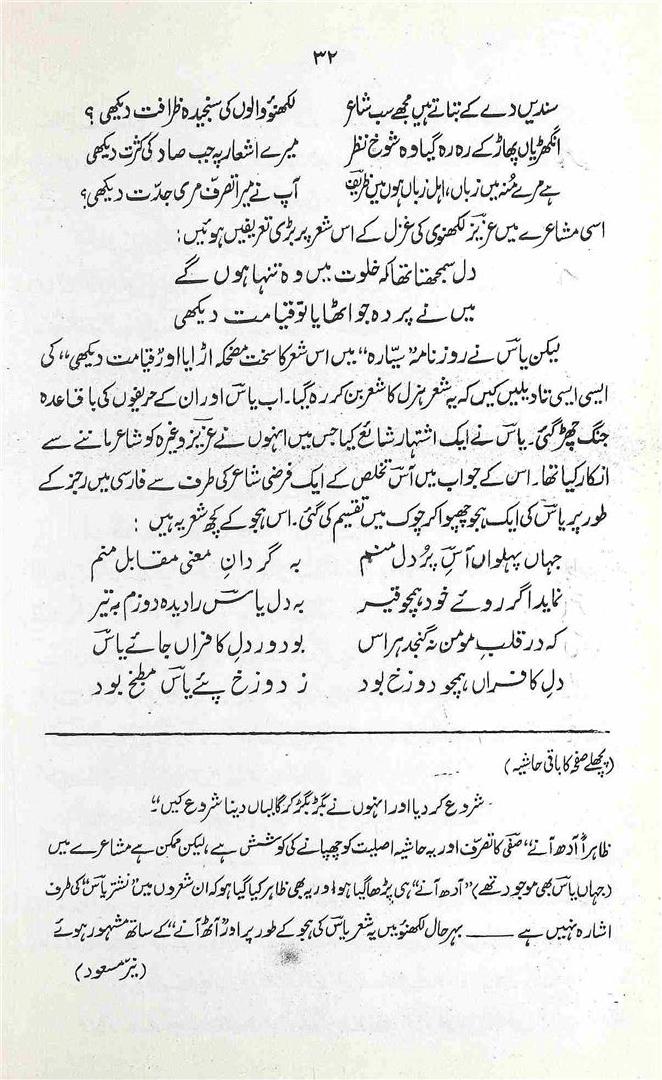 ۳۲
سندیں دے کے بناتے ہیں مجھے سب شاعر لکھنؤ والوں کی سنجیدہ ظرافت دیکھی ؟
انگھڑیاں پھاڑ کے رہ رہ گیا وہ شوخ نظر میرے اشعار پہ جب صاد کی کثرت دیکھی
ہے مرے مُنہ میں زباں، اہل زباں ہوں میں ظریفؔ آپ نے میرا تصرّف مری جدّت دیکھی ؟
اسی مشاعرے میں عزیزؔ لکھنوی کی غزل کے اس شعر پر بڑی تعریفیں ہوئیں :
دل سمجھتا تھا کہ خلوت میں وہ تنہا ہوں گے
میں نے پردہ جو اٹھایا تو قیامت دیکھی
لیکن یاسؔ نے روزنامہ "سیّارہ" میں اس شعر کا سخت مضحکہ اڑایا اور "قیامت دیکھی" کی
ایسی ایسی تاویلیں کیں کہ یہ شعر ہزل کا شعر بن کر رہ گیا۔ اب یاسؔ اور ان کے حریفوں کی باقاعدہ
جنگ چھڑ گئی۔ یاسؔ نے ایک اشتہار شائع کیا جس میں انہوں نے عزیزؔ وغیرہ کو شاعر ماننے سے
انکار کیا تھا۔ اس کے جواب میں آسؔ تخلص کے ایک فرضی شاعر کی طرف سے فارسی میں رجز کے
طور پر یاسؔ کی ایک ہجو چھپوا کر چوک میں تقسیم کی گئی۔ اس ہجو کے کچھ شعر یہ ہیں :
جہاں پہلواں آسِؔ پُر دل منم بہ گردانِ معنی مقابل منم
نماید اگر روئے خود ہمچو قیر بہ دل یاسؔ را دیدہ دوزم بہ تیر
کہ در قلبِ مومن نہ گنجد ہراس بود در دلِ کافراں جائے یاسؔ
دلِ کافراں ہمچو دوزخ بود ز دوزخ پئے یاسؔ مطبخ بود
(پچھلے صفحے کا باقی حاشیہ)
شروع کر دیا اور انہوں نے بگڑ بگڑ کر گالیاں دینا شروع کیں"۔
ظاہراً "آدھ آنے" صفی کا تصرّف اور یہ حاشیہ اصلیت کو چھپانے کی کوشش ہے، لیکن ممکن ہے مشاعرے میں
(جہاں یاسؔ بھی موجود تھے) "آدھ آنے" ہی پڑھا گیا ہو، اور یہ بھی ظاہر کیا گیا ہو کہ ان شعروں میں "نشتر یاسؔ" کی طرف
اشارہ نہیں ہے ــــــ بہرحال لکھنؤ میں یہ شعر یاسؔ کی ہجو کے طور پر اور "آٹھ آنے" کے ساتھ مشہور ہوئے
(نیّر مسعود)